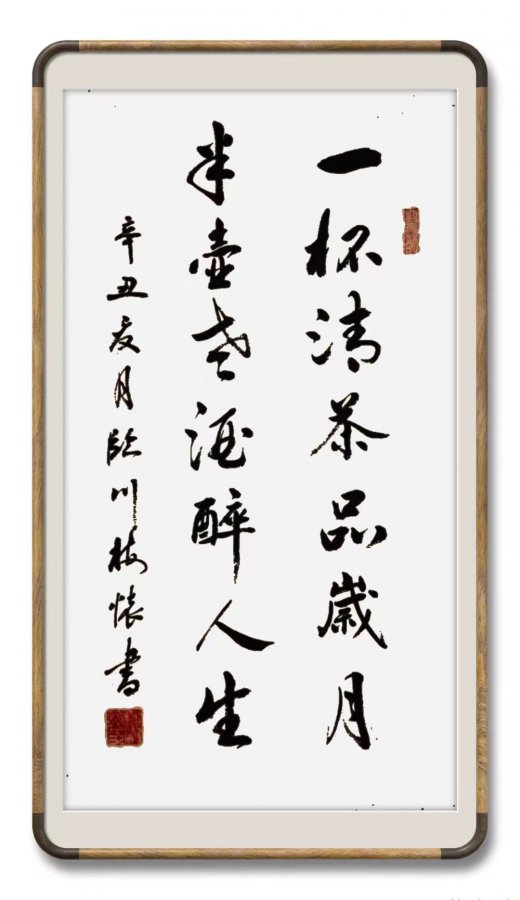 一杯清茶品歲月
半壺老酒醉人生
辛丑夏月臨川梅懷書